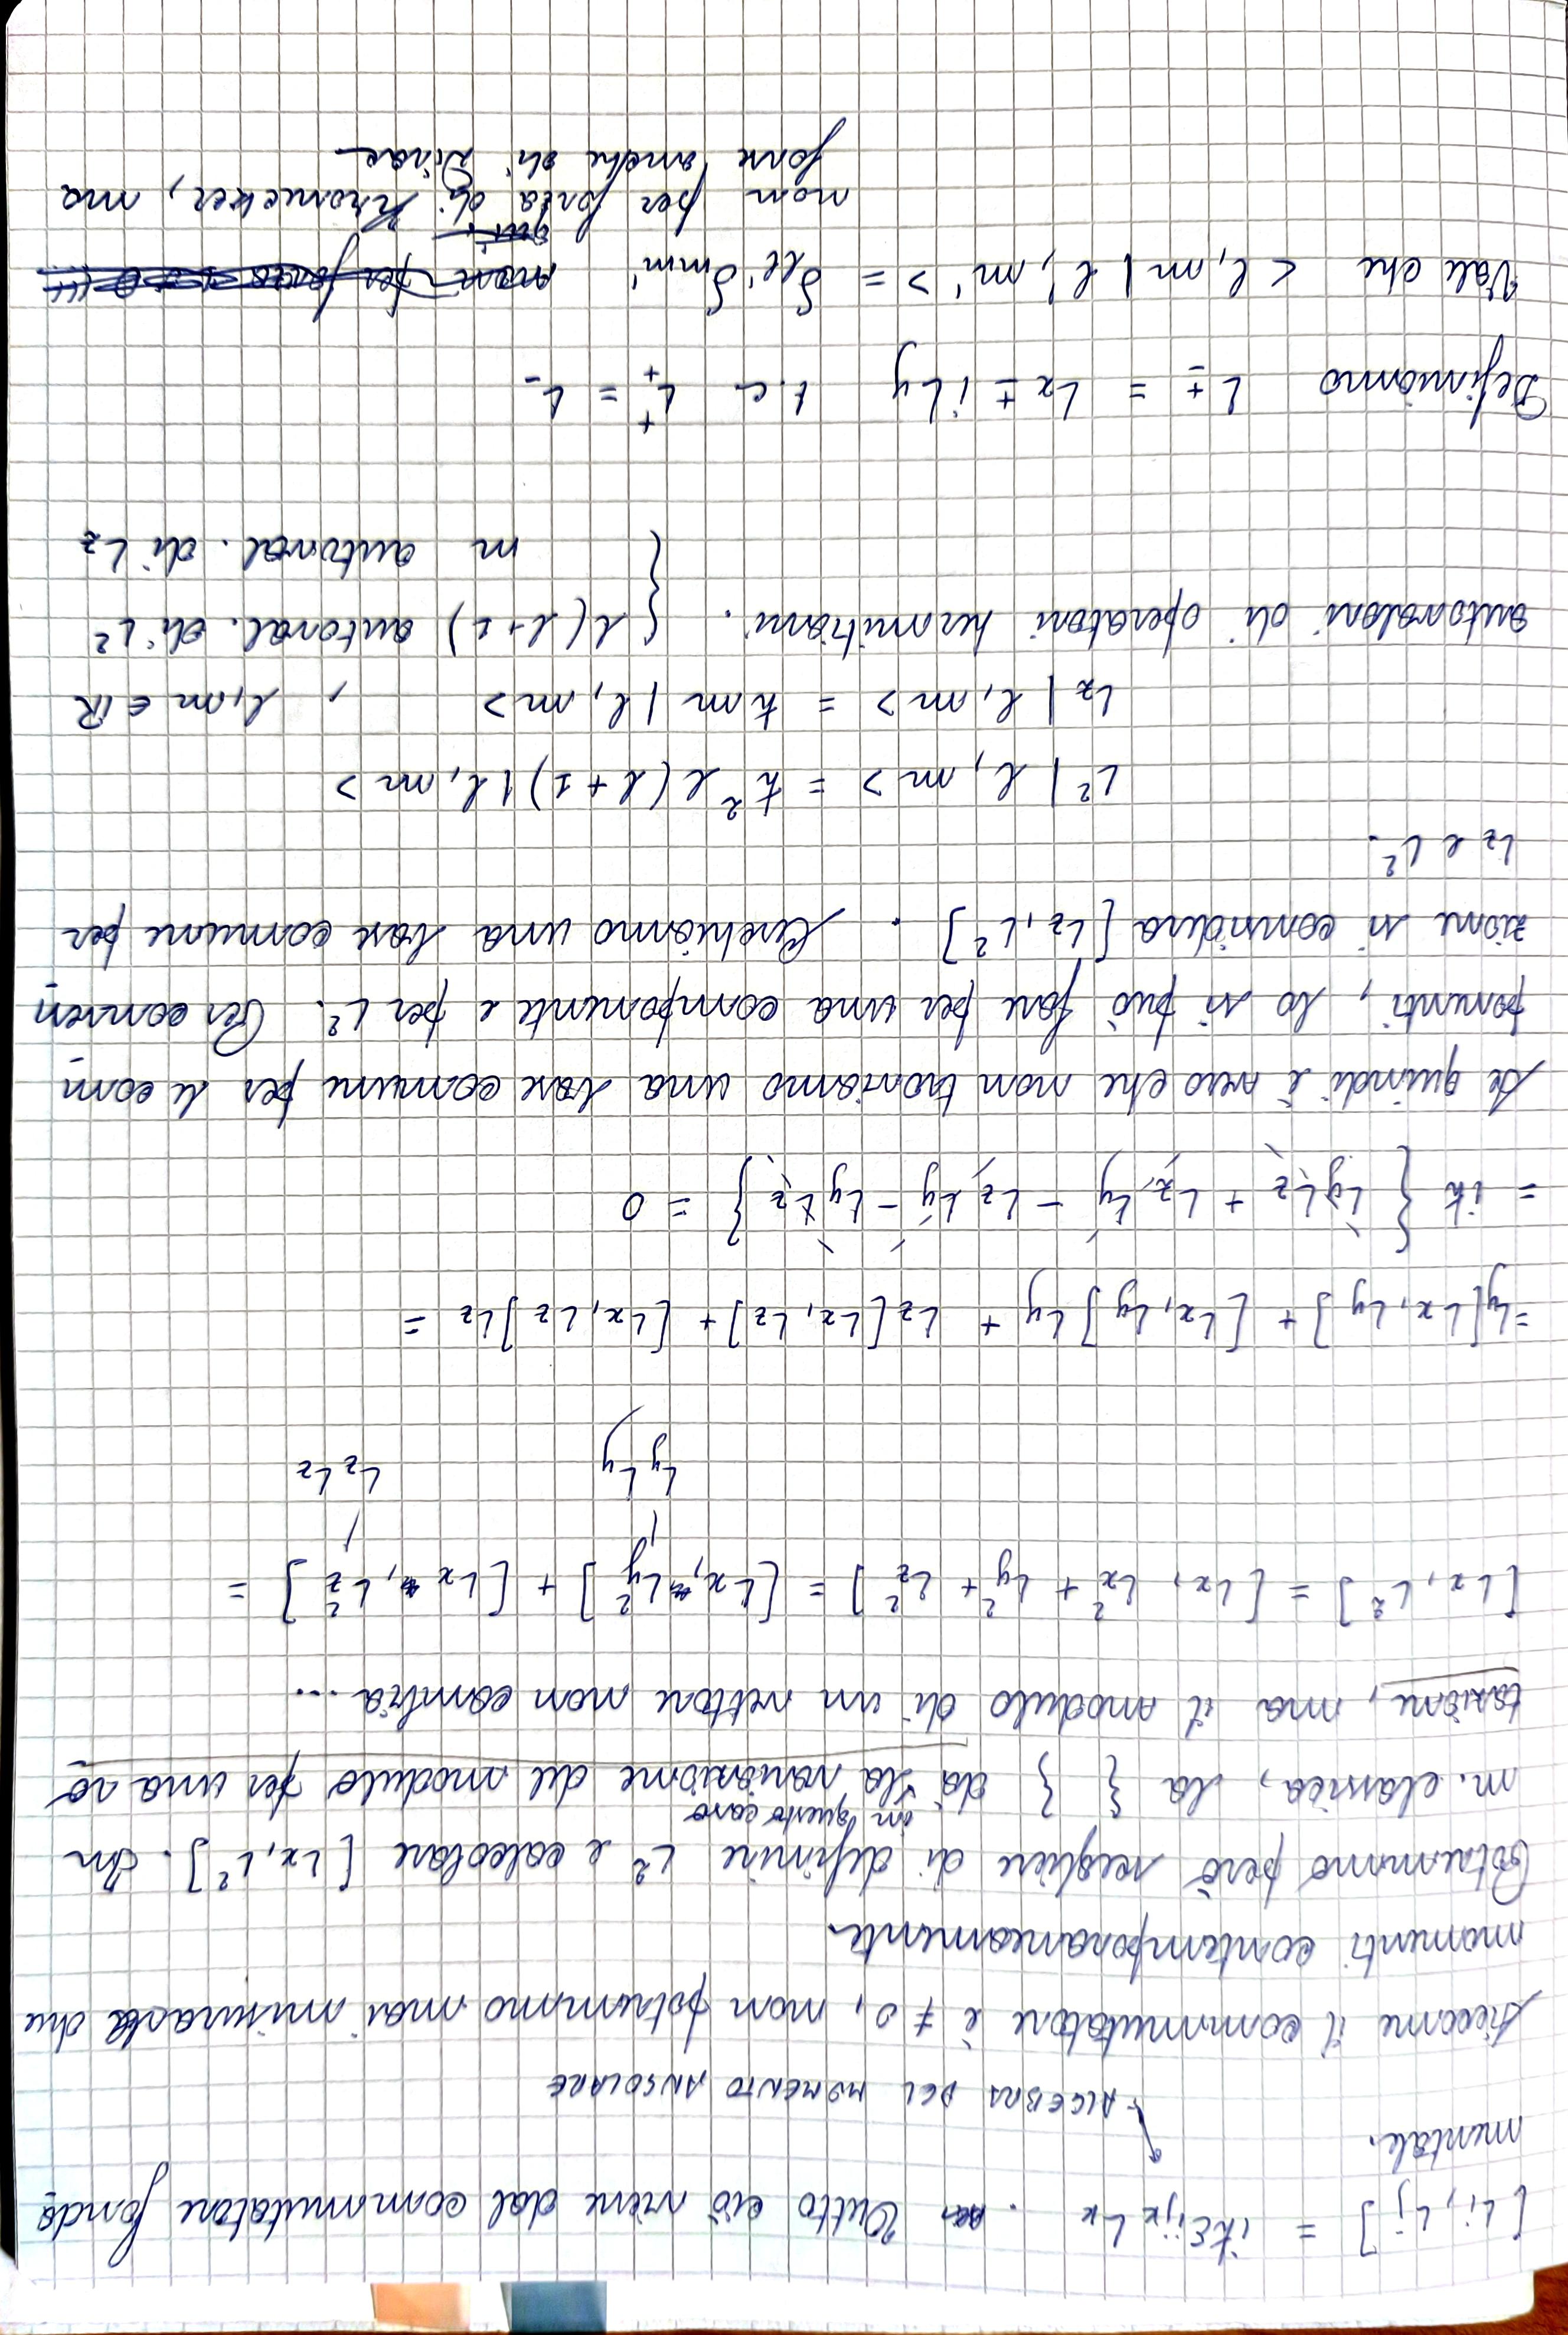 [Li, Lj] = iħεijk Lk . Tutto ciò viene dal commutatore fonda
mentale.
ALGEBRA DEL MOMENTO ANGOLARE
Siccome il commutatore è ≠ 0, non potremmo mai misurare due
momenti contemporaneamente.
Potremmo però scegliere di definire L² e calcolare [Lx, L²]. In
in questo caso
m. classica, la { } dà la variazione del modulo per una ro
tazione, ma il modulo di un vettore non cambia...
[Lx, L²] = [Lx, Lx² + Ly² + Lz²] = [Lx, Ly²] + [Lx, Lz²] =
LyLy LzLz
= Ly[Lx, Ly] + [Lx, Ly]Ly + Lz[Lx, Lz] + [Lx, Lz]Lz =
= iħ { LyLz + LzLy - LzLy - LyLz } = 0
Se quindi è vero che non troviamo una base comune per le com
ponenti, lo si può fare per una componente e per L². Per conven
zione si considera [Lz, L²]. Cerchiamo una base comune per
Lz e L².
L² | l, m > = ħ² l(l+1) | l, m >
Lz | l, m > = ħ m | l, m > , l, m ∈ ℝ
autovalori di operatori hermitiani. { l(l+1) autoval. di L²
m autoval. di Lz
Definiamo L± = Lx ± iLy t.c. L+† = L-
Vale che < l, m | l', m' > = δll' δmm'
non per forza di Kronecker, ma
forse anche di Dirac